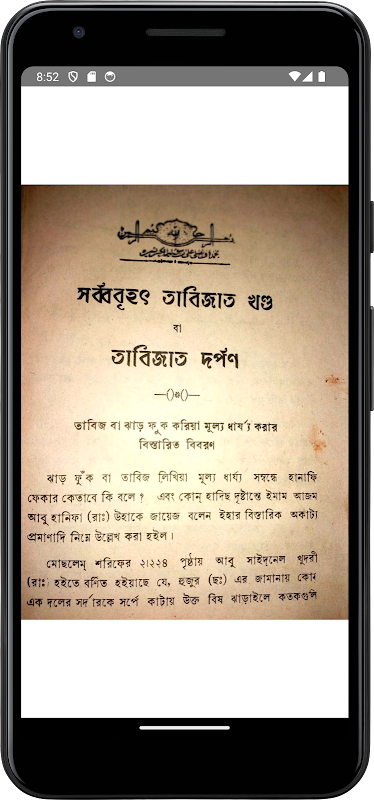 8:52
সর্ব্ববৃহৎ তাবিজাত খণ্ড
বা
তাবিজাত দর্পণ
—()০()—
তাবিজ বা ঝাড় ফুক করিয়া মূল্য ধার্য্য করার
বিস্তারিত বিবরণ
ঝাড় ফুঁক বা তাবিজ লিখিয়া মূল্য ধার্য্য সম্বন্ধে হানাফি
ফেকার কেতাবে কি বলে ? এবং কোন্ হাদিছ দৃষ্টান্তে ইমাম আজম
আবু হানিফা (রাঃ) উহাকে জায়েজ বলেন ইহার বিস্তারিক অকাট্য
প্রমাণাদি নিম্নে উল্লেখ করা হইল।
মোছলেম্ শরিফের ২।২২৪ পৃষ্ঠায় আবু সাইদনেল খুদরী
(রাঃ) হইতে বর্ণিত হইয়াছে যে, হুজুর (ছঃ) এর জামানায় কোন
এক দলের সর্দারকে সর্পে কাটায় উক্ত বিষ ঝাড়াইলে কতকগুলি